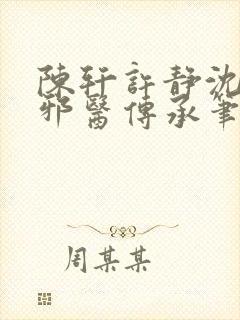 陳軒許靜沈
邪醫傳承筆
周某某